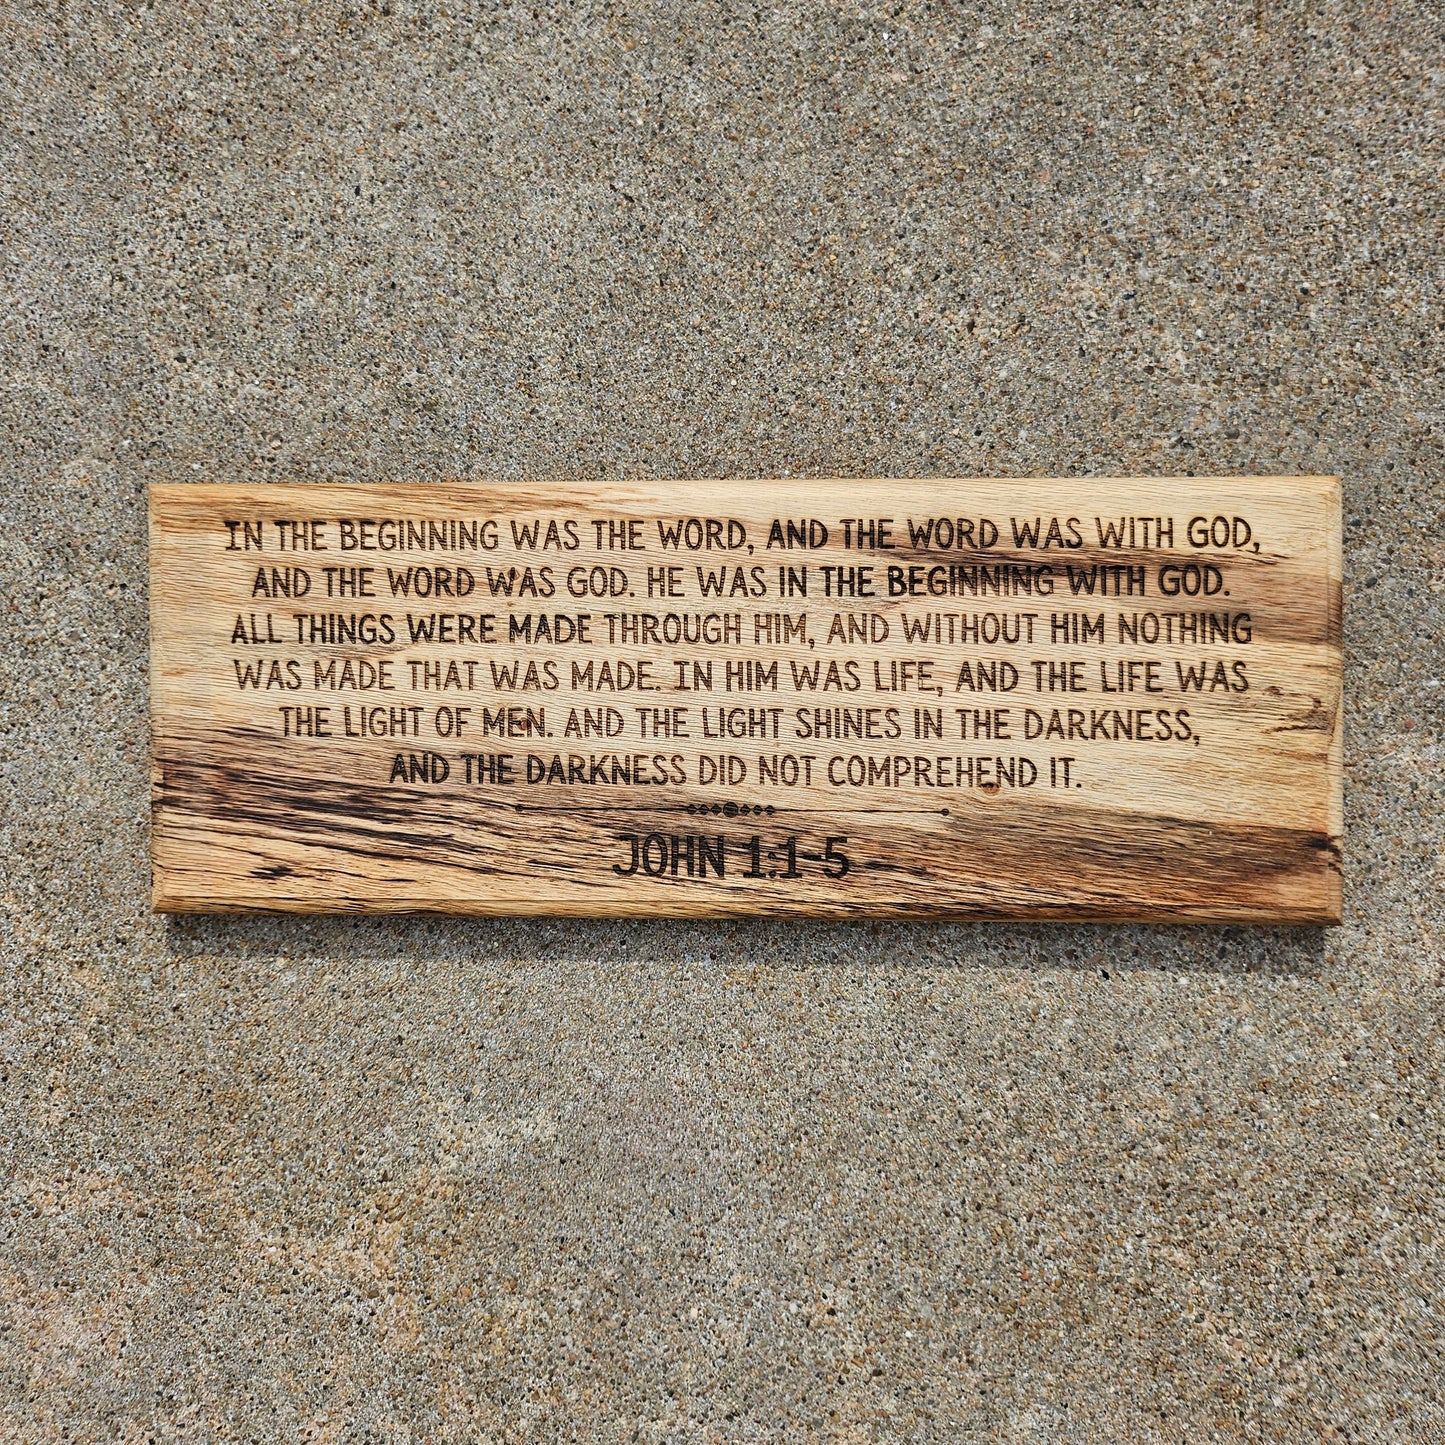 IN THE BEGINNING WAS THE WORD, AND THE WORD WAS WITH GOD,
AND THE WORD WAS GOD. HE WAS IN THE BEGINNING WITH GOD.
ALL THINGS WERE MADE THROUGH HIM, AND WITHOUT HIM NOTHING
WAS MADE THAT WAS MADE. IN HIM WAS LIFE, AND THE LIFE WAS
THE LIGHT OF MEN. AND THE LIGHT SHINES IN THE DARKNESS,
AND THE DARKNESS DID NOT COMPREHEND IT.
JOHN 1:1-5